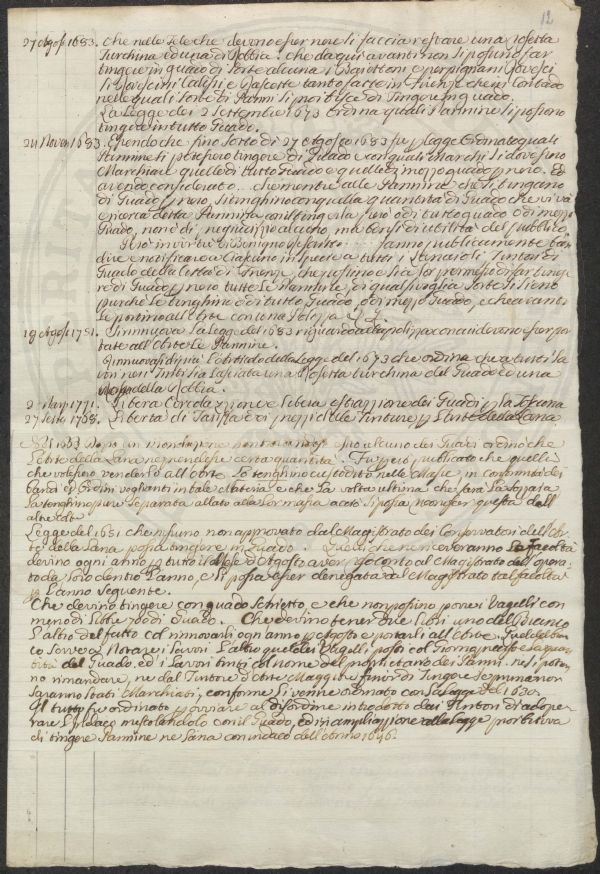 12
27 Agos.º 1683. che nelle Tele che devono esser nere si faccia restare una rosetta
Turchina ed una di Robbia. che da qui avanti non si possino far
tingere in guado di sorte alcuna i Bajettoni e perpignani rovesci
si rovescini calisse e rascette tanto fatte in Firenze che in Contado
nelle quali sorte di Panni si proibisce di Tingere in guado.
La Legge dei 2 Settembre 1673 ordina quali Pannine si possono
tingere in tutto Guado.
24 Novem 1683. Essendo che fino sotto di 27 Agosto 1683 fu per legge Ordinato quali
Pannine si potessero tingere di Guado e con quali Marchi si dovessino
Marchiare quelle di tutto Guado e quelle di mezzo guado per nero. Et
avendo considerato che mentre alle Pannine che si tingano
di Guado per nero, si tenghino con quella quantità di Guado che si và
a detta Pannina con il tingerla però o di tutto guado o di mezzo
Guado, non è di pregiudizio alcuno, ma bensì di utilità del pubblico
Però in virtù di Benigno rescritto fanno pubblicamente ban=
dire e notificare a ciascuno in specie a tutti i Lanaioli, Tintori di
Guado della Città di Firenze, che possino e sia lor permesso di far tinge=
re di Guado per nero tutte le Pannine, di qualsivoglia sorte si sieno
purchè le tenghino o di tutto Guado, o di mezzo Guado, e che avanti
le portino all'Arte con una Polizza &c.
19 Agos.º 1751. Si rinnuova la Legge del 1683 riguardo alla polizza con cui devono esser por=
tate all'Arte le Pannine.
Si rinnuova di più l'obbligo della Legge del 1673 che ordina che a tutti i la=
vori neri Tinti sia lasciata una Rosetta turchina del Guado ed una
Rossa della Robbia.
2 Marzo 1771. Libera Circolazione e libera estrazione dei Guadi per la Toscana
27 1768. Libertà di Tariffa e di prezzi delle Tinture per l'Arte della Lana
Nel 1653 dopo un esso alcuno dei Guadi ordinò che
l'Arte della Lana ne prendesse certa quantità. Fu però pubblicato che quelli
che volessero venderlo all'Arte lo tenghino custodito nelle Masse in conformità dei
Bandi et Ordini veglianti in tale Materia e che la volta ultima che sarà
la tenghino pure separata allato alla lor massa acciò si possa riconoscer questa dall'
altre volte
Legge del 1651 che nessuno non approvato dal Magistrato dei Conservatori dell'Ar=
te della Lana possa tingere in Guado. Quelli che ne riceveranno la facoltà
devino ogni anno per tutto il Mese di Agosto averne preso conto al Magistrato dell'opera=
to da loro dentro l'anno, e li possa esser denegata dal Magistrato tal facoltà
per l'anno seguente.
Che devino tingere con guado schietto, e che non possino porre i Vagelli con
meno di Libre 20 di Guado. Che devino tener due Libri uno del Bianco
l'altro del fatto col rinnovarli ogni anno per Agosto e portarli all'Arte. Quel del Bian=
co serve per Notare i lavori l'altro quel dei Vagelli, posti col giorno, peso e la quan=
tità del Guado, ed i Lavori tinti col nome del proprietario dei Panni. ne si poten=
no rimandare, ne dal Tintore d'Arte Maggiore finir di Tingere se prima non
saranno stati Marchiati, conforme si venne ordinato con la legge del 1630.
Il tutto fu ordinato per ovviare al disordine introdotto dai Tintori di adope=
rare l'Indaco mescolandolo con il Guado, ed in ampliazione alla legge proibitiva
di tingere Pannine ne Lana con indaco dell'Anno 1646.